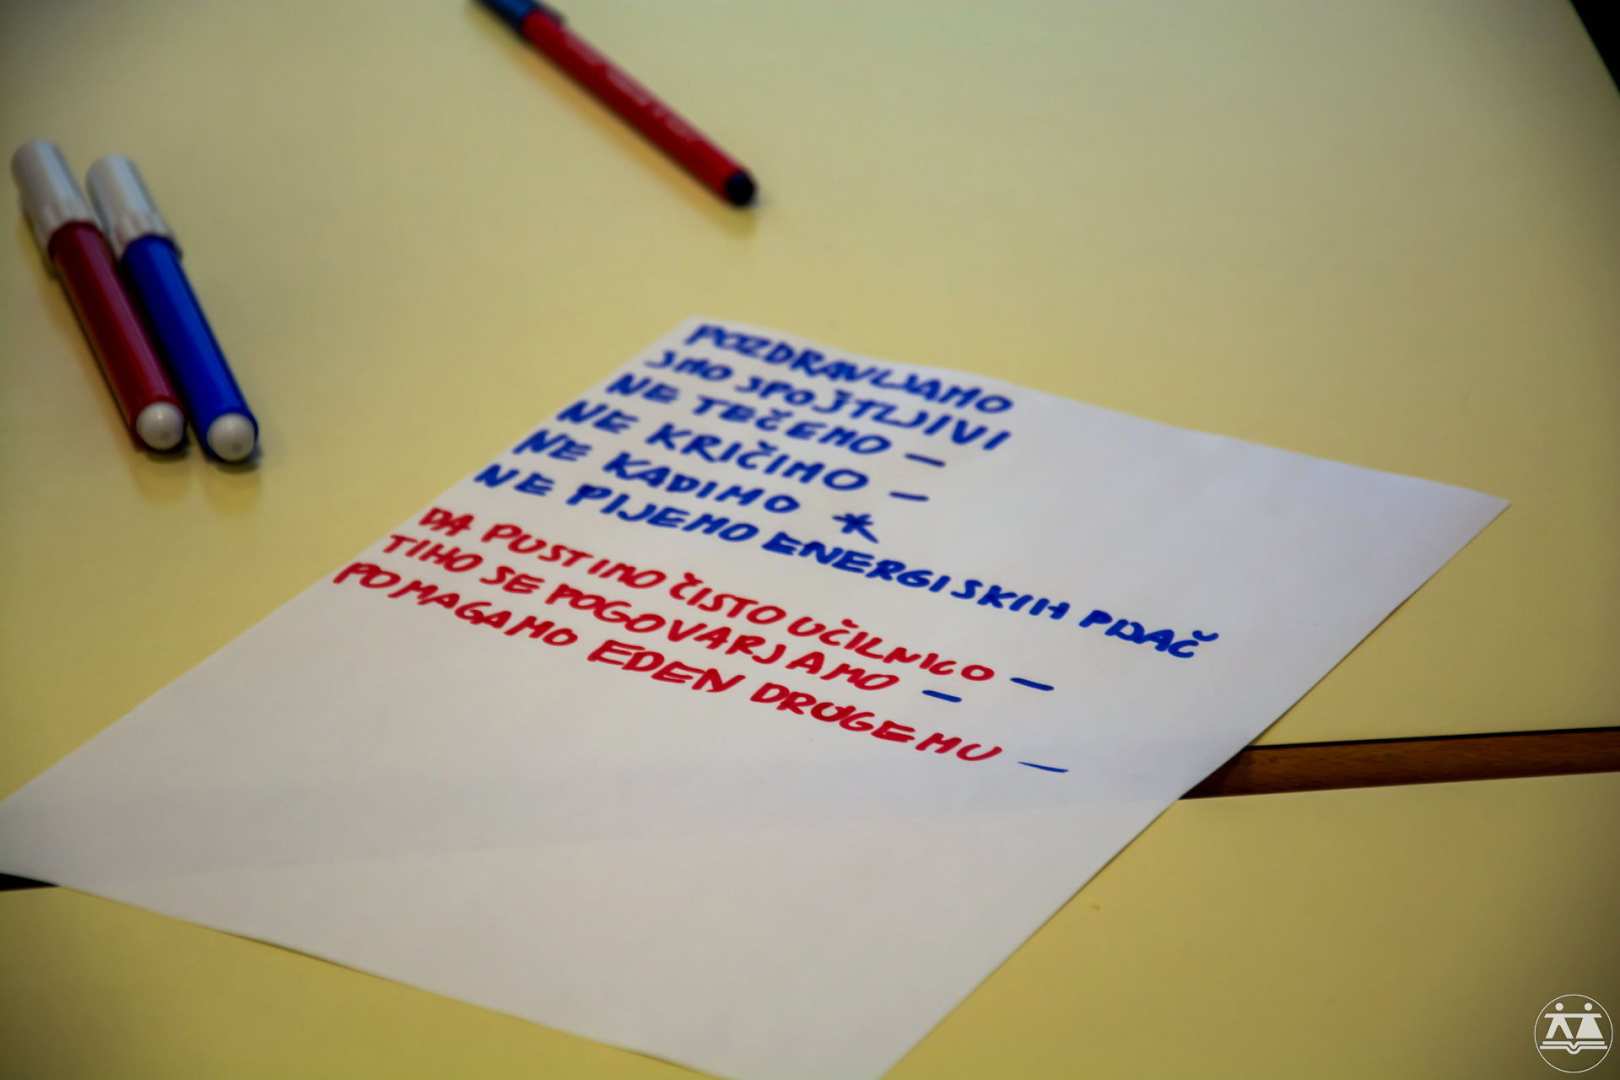 POZDRAVLJAMO
SMO SPOŠTLJIVI
NE TEČEMO —
NE KRIČIMO —
NE KADIMO *
NE PIJEMO ENERGISKIH PIJAČ
DA PUSTIMO ČISTO UČILNICO —
TIHO SE POGOVARJAMO —
POMAGAMO EDEN DRUGEMU —